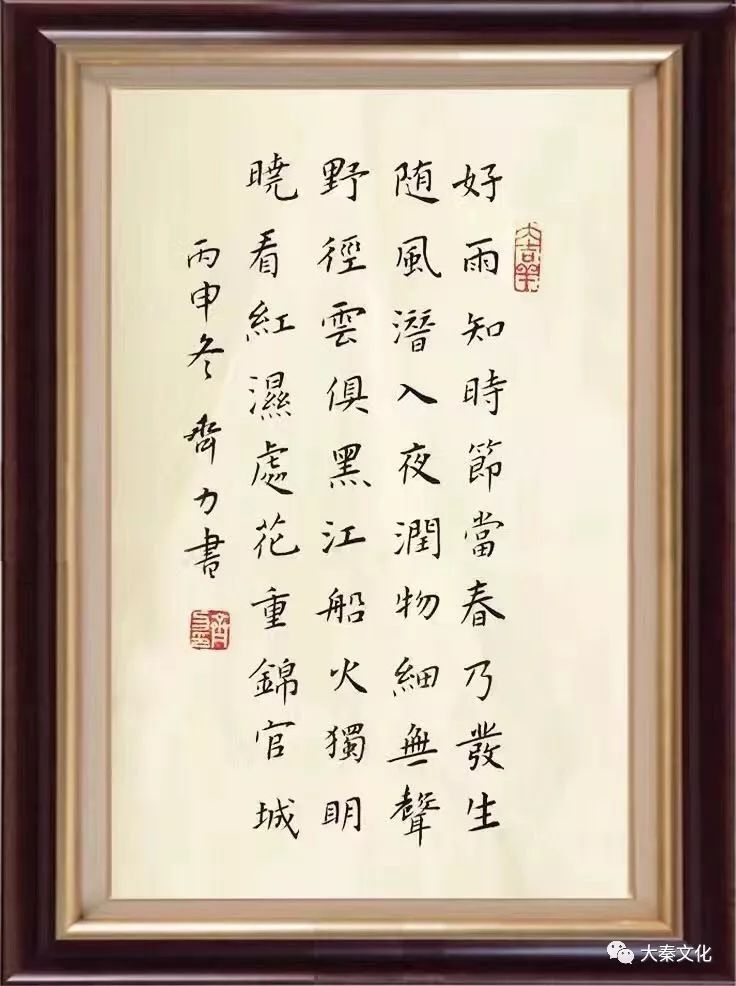 好雨知時節當春乃發生
随風潛入夜潤物細無聲
野徑雲俱黑江船火獨明
曉看紅濕處花重錦官城
丙申冬齊力書
大秦文化